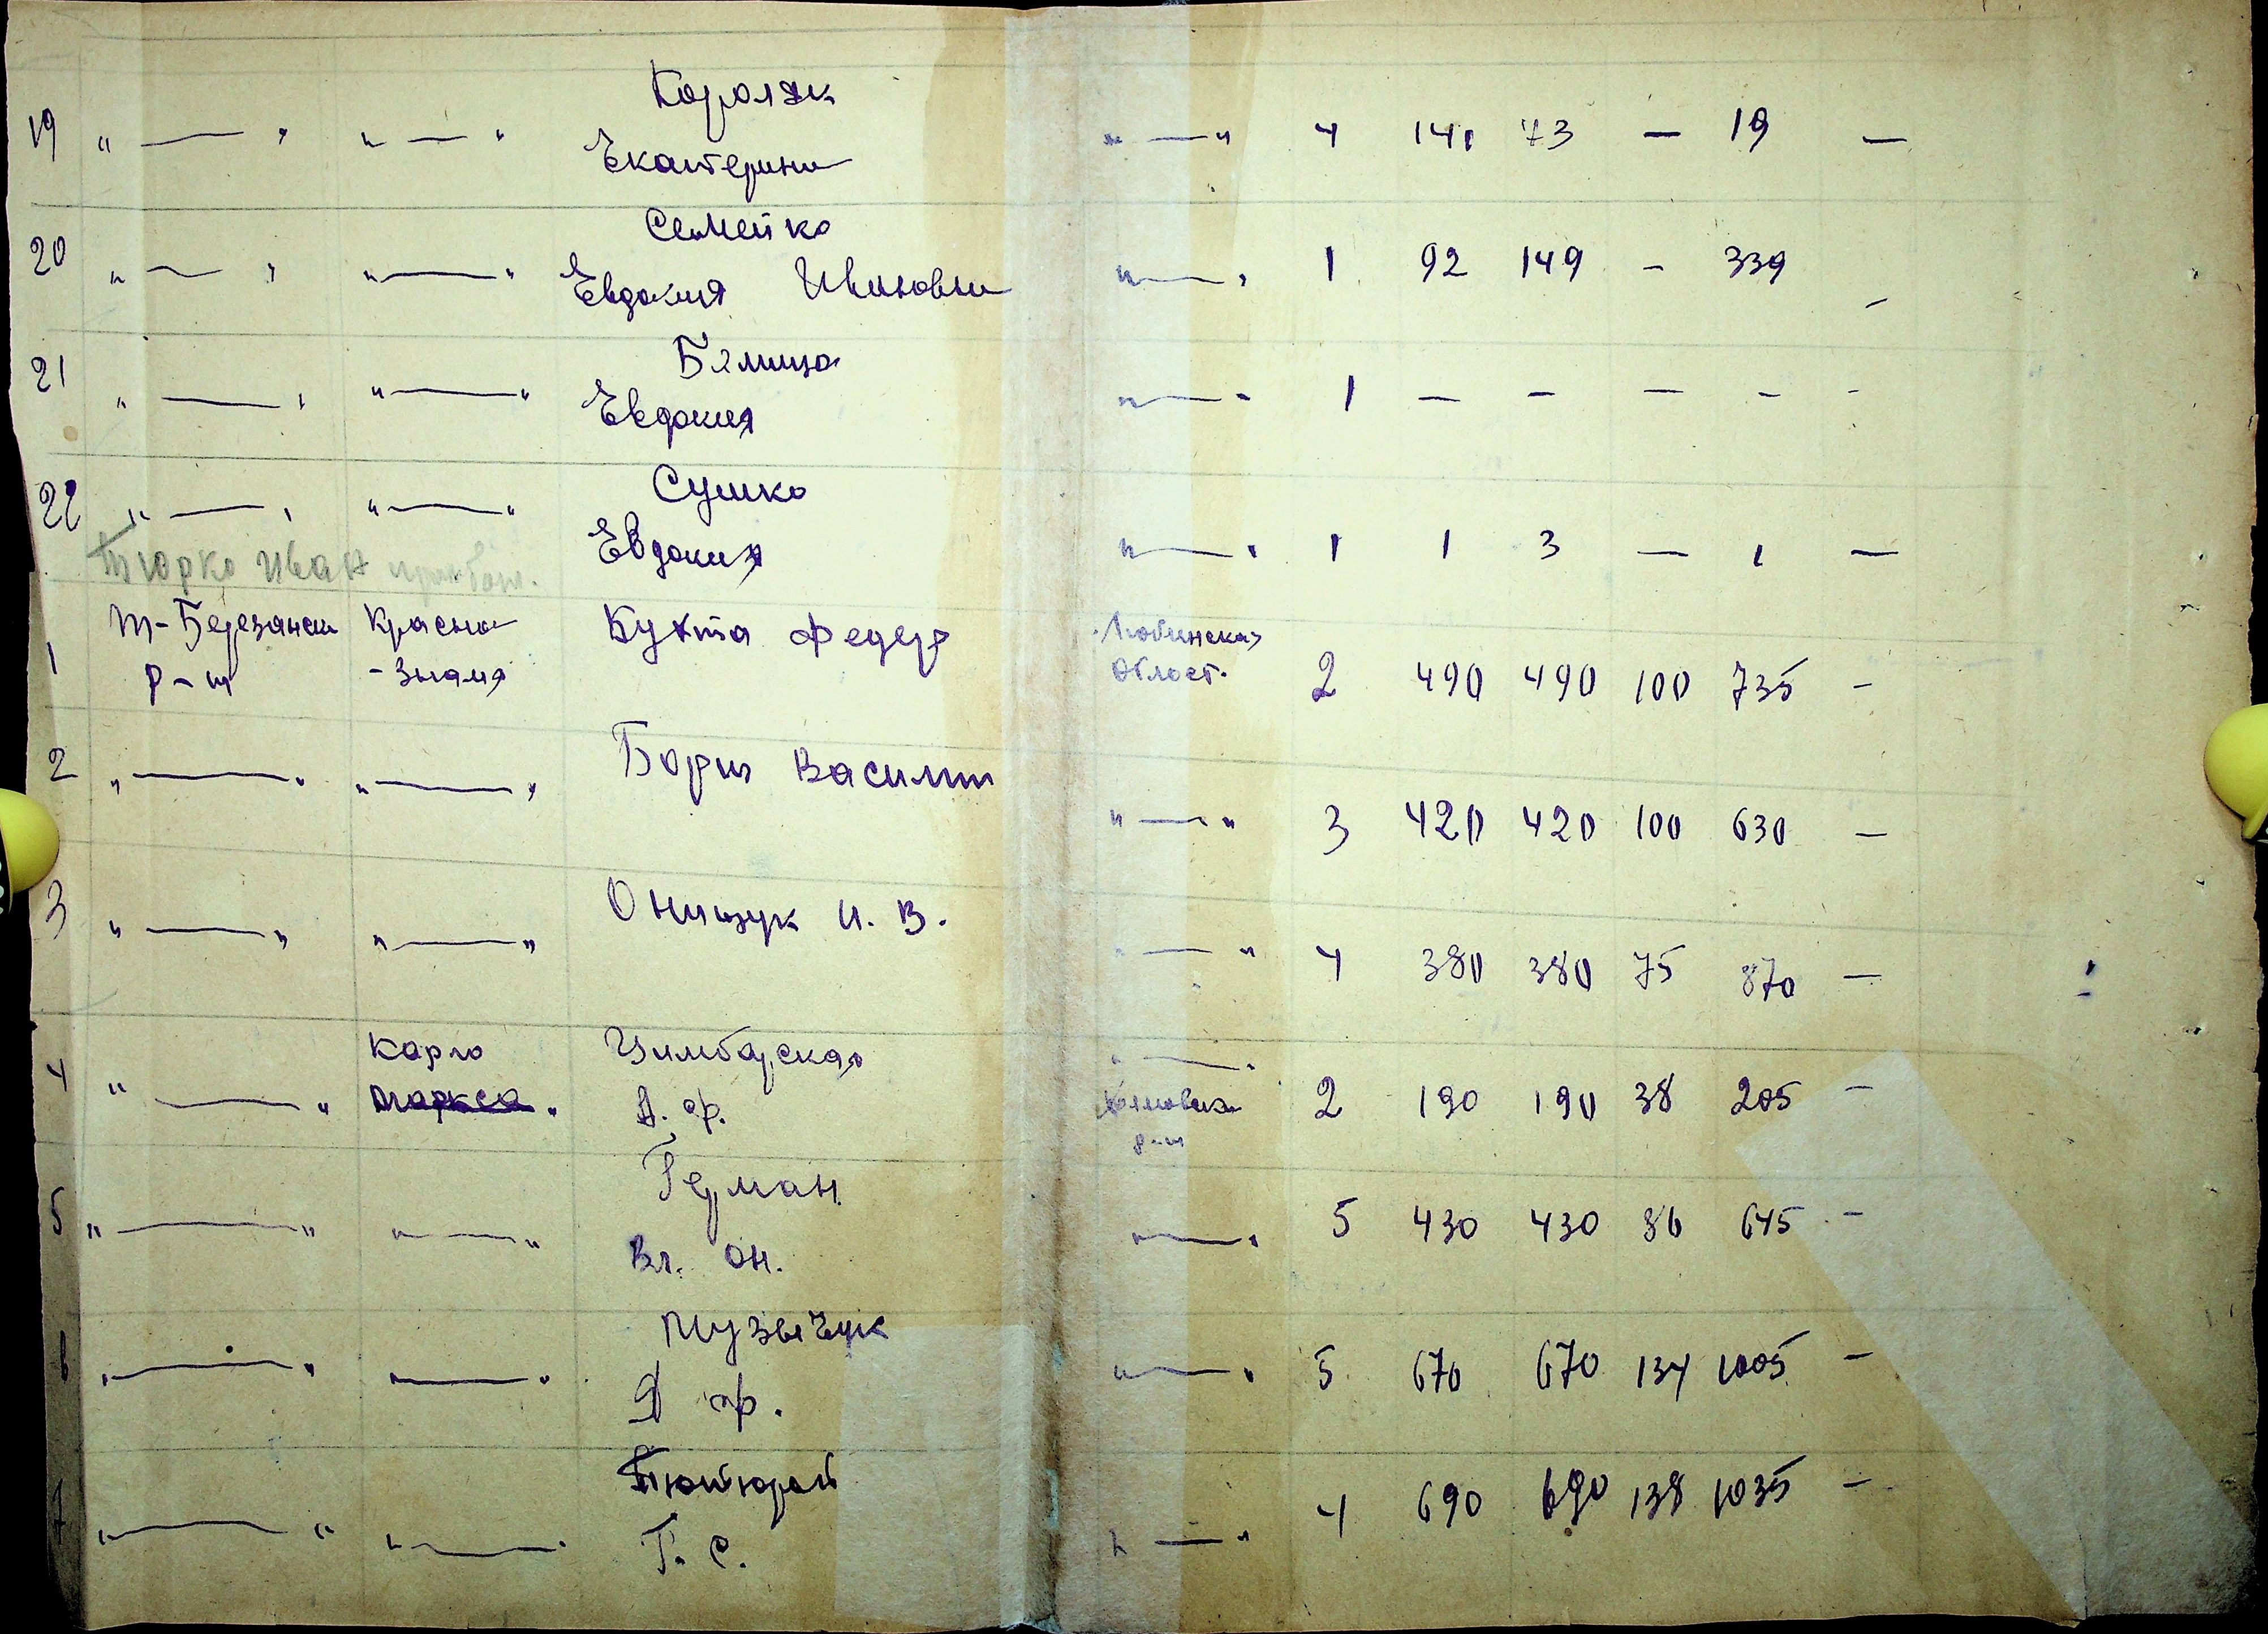 Короляк
19 " — " " — " Екатерина " — " 4 141 73 — 19 —
Семейко
20 " — " " — " Евдокия Ивановна " — " 1 92 149 - 339 —
21 " — " " — " Евдокия " — " 1 — - — - -
Сушко
22 " — " " — " Евдокия " — " 1 1 3 — 1 —
Тюрко Иван
1 Т-Березанск Красно Кухта Федер Любинская
р-н -Знамя област. 2 490 490 100 735 —
2 " — " " — " Василий " — " 3 420 420 100 630 —
3 " — " " — " Онищук И. В. " — " 4 380 380 75 870 —
Карло Цимбарская " — "
4 " — " Маркса. А. Ф. 2 190 190 38 205 —
р-н
Герман
5 " — " " — " Вл. Он. " — " 5 430 430 86 645 -
Музычук
6 " — " " — " Д Ф. " — " 5 670 670 134 1005 —
7 " — " " — " Т. С. " — " 4 690 690 138 1035 —